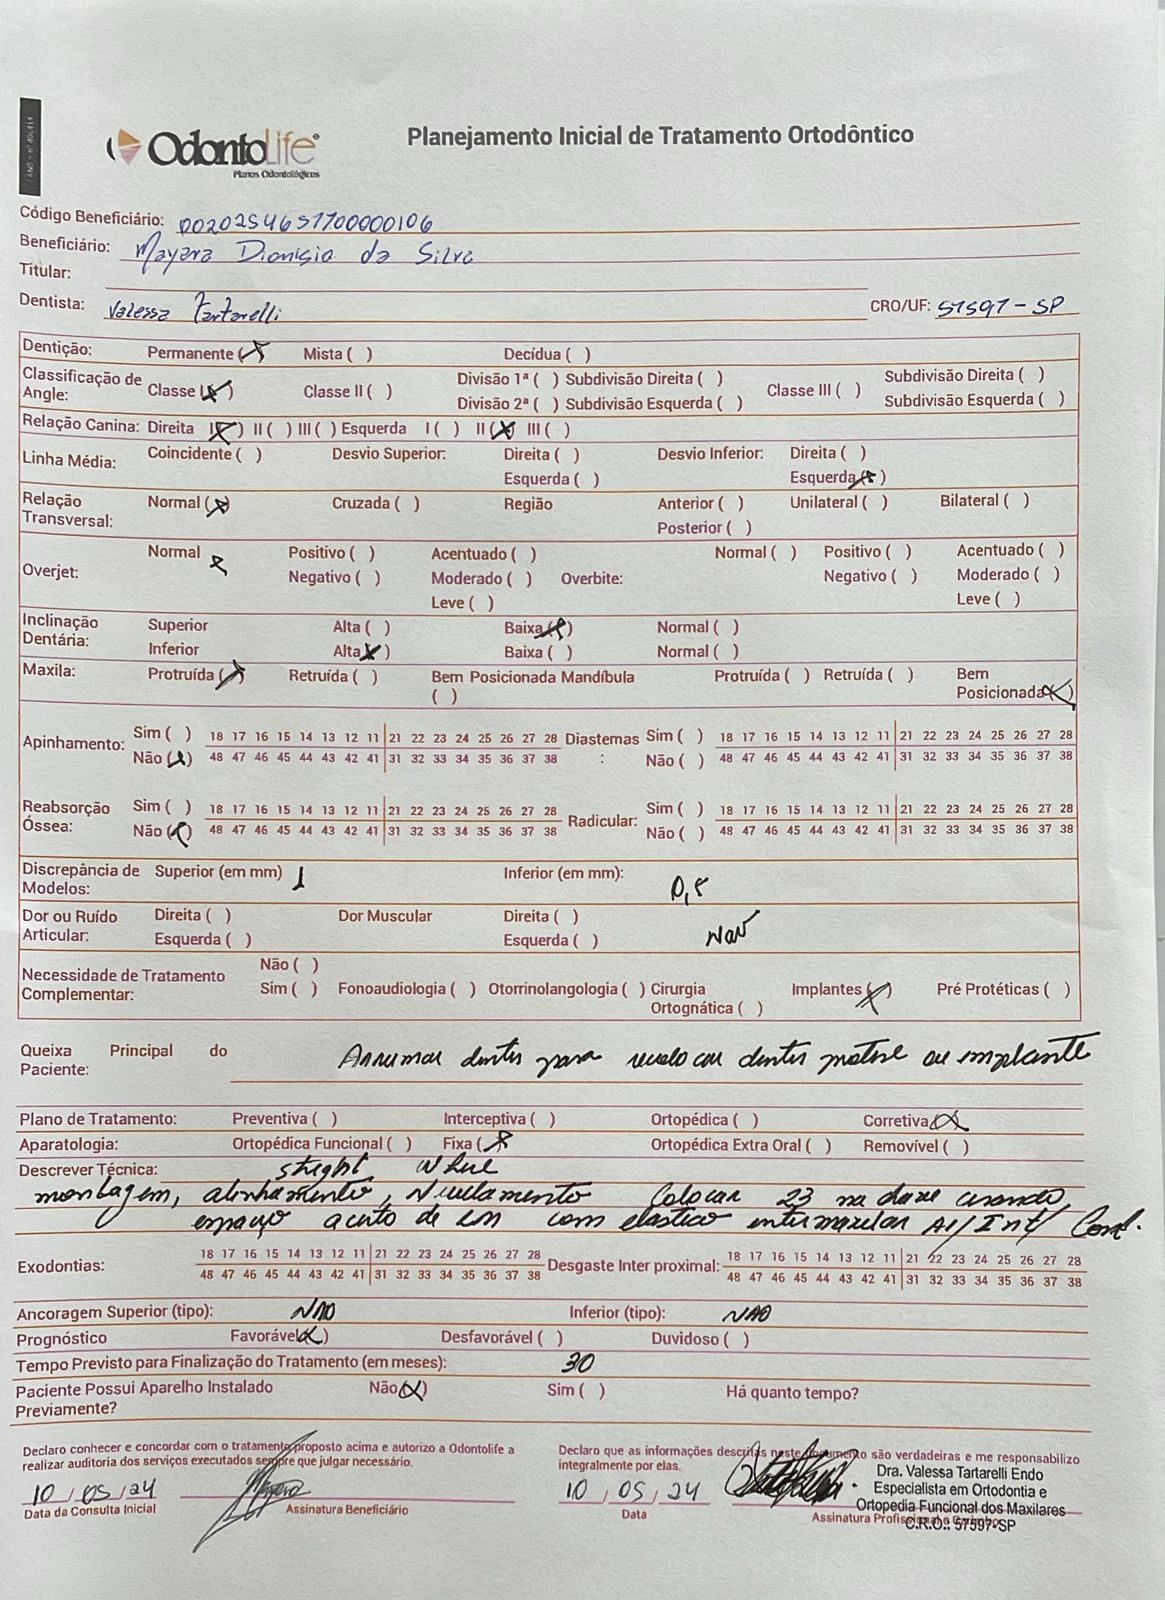 ANS - nº 406414
OdontoLife®
Planos Odontológicos
Planejamento Inicial de Tratamento Ortodôntico
Código Beneficiário: 00202546517700000106
Beneficiário: Mayara Dionisia da Silva
Titular:
Dentista: Valessa Tartarelli CRO/UF: 57597-SP
Dentição: Permanente (X) Mista ( ) Decídua ( )
Classificação de Angle: Classe I (X) Classe II ( ) Divisão 1ª ( ) Subdivisão Direita ( ) Classe III ( ) Subdivisão Direita ( )
Divisão 2ª ( ) Subdivisão Esquerda ( ) Subdivisão Esquerda ( )
Relação Canina: Direita I (X) II ( ) III ( ) Esquerda I ( ) II (X) III ( )
Linha Média: Coincidente ( ) Desvio Superior: Direita ( ) Desvio Inferior: Direita ( )
Esquerda ( ) Esquerda (X)
Relação Transversal: Normal (X) Cruzada ( ) Região Anterior ( ) Unilateral ( ) Bilateral ( )
Posterior ( )
Overjet: Normal X Positivo ( ) Acentuado ( ) Normal ( ) Positivo ( ) Acentuado ( )
Negativo ( ) Moderado ( ) Overbite: Negativo ( ) Moderado ( )
Leve ( ) Leve ( )
Inclinação Dentária: Superior Alta ( ) Baixa (X) Normal ( )
Inferior Alta (X) Baixa ( ) Normal ( )
Maxila: Protruída (X) Retruída ( ) Bem Posicionada Mandíbula ( ) Protruída ( ) Retruída ( ) Bem Posicionada (X)
Apinhamento: Sim ( ) 18 17 16 15 14 13 12 11 21 22 23 24 25 26 27 28 Diastemas: Sim ( ) 18 17 16 15 14 13 12 11 21 22 23 24 25 26 27 28
Não (X) 48 47 46 45 44 43 42 41 31 32 33 34 35 36 37 38 Não ( ) 48 47 46 45 44 43 42 41 31 32 33 34 35 36 37 38
Reabsorção Óssea: Sim ( ) 18 17 16 15 14 13 12 11 21 22 23 24 25 26 27 28 Radicular: Sim ( ) 18 17 16 15 14 13 12 11 21 22 23 24 25 26 27 28
Não (X) 48 47 46 45 44 43 42 41 31 32 33 34 35 36 37 38 Não ( ) 48 47 46 45 44 43 42 41 31 32 33 34 35 36 37 38
Discrepância de Modelos: Superior (em mm) 1 Inferior (em mm): 0,5
Dor ou Ruído Articular: Direita ( ) Dor Muscular Direita ( )
Esquerda ( ) Esquerda ( ) Não
Necessidade de Tratamento Complementar: Não ( )
Sim ( ) Fonoaudiologia ( ) Otorrinolangologia ( ) Cirurgia Ortognática ( ) Implantes (X) Pré Protéticas ( )
Queixa Principal do Paciente: Arrumar dentes para recolocar dentes protese ou implante
Plano de Tratamento: Preventiva ( ) Interceptiva ( ) Ortopédica ( ) Corretiva (X)
Aparatologia: Ortopédica Funcional ( ) Fixa (X) Ortopédica Extra Oral ( ) Removível ( )
Descrever Técnica: stright Whire
montagem, alinhamento, Nivelamento Colocar 23 na chave usando
espaço acerto de LM com elastico intermaxilar AI/Int/ Cont.
Exodontias: 18 17 16 15 14 13 12 11 21 22 23 24 25 26 27 28 Desgaste Inter proximal: 18 17 16 15 14 13 12 11 21 22 23 24 25 26 27 28
48 47 46 45 44 43 42 41 31 32 33 34 35 36 37 38 48 47 46 45 44 43 42 41 31 32 33 34 35 36 37 38
Ancoragem Superior (tipo): NÃO Inferior (tipo): NÃO
Prognóstico Favorável (X) Desfavorável ( ) Duvidoso ( )
Tempo Previsto para Finalização do Tratamento (em meses): 30
Paciente Possui Aparelho Instalado Previamente? Não (X) Sim ( ) Há quanto tempo?
Declaro conhecer e concordar com o tratamento proposto acima e autorizo a Odontolife a
realizar auditoria dos serviços executados sempre que julgar necessário.
10 / 05 / 24 Mayara
Data da Consulta Inicial Assinatura Beneficiário
Declaro que as informações descritas neste documento são verdadeiras e me responsabilizo
integralmente por elas.
10 / 05 / 24
Data Assinatura Profissional e Carimbo
Dra. Valessa Tartarelli Endo
Especialista em Ortodontia e
Ortopedia Funcional dos Maxilares
C.R.O.: 57597-SP